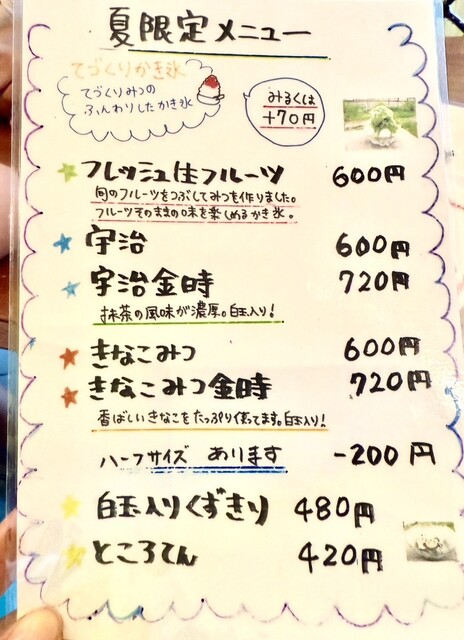 夏限定メニュー
てづくりかき氷
てづくりみつの
ふんわりしたかき氷
みるくは
+70円
フレッシュ生フルーツ 600円
旬のフルーツをつぶしてみつを作りました。
フルーツそのままの味を楽しめるかき氷。
宇治 600円
宇治金時 720円
抹茶の風味が濃厚。白玉入り!
きなこみつ 600円
きなこみつ金時 720円
香ばしいきなこをたっぷり使ってます。白玉入り!
ハーフサイズ あります -200円
白玉入りくずきり 480円
ところてん 420円